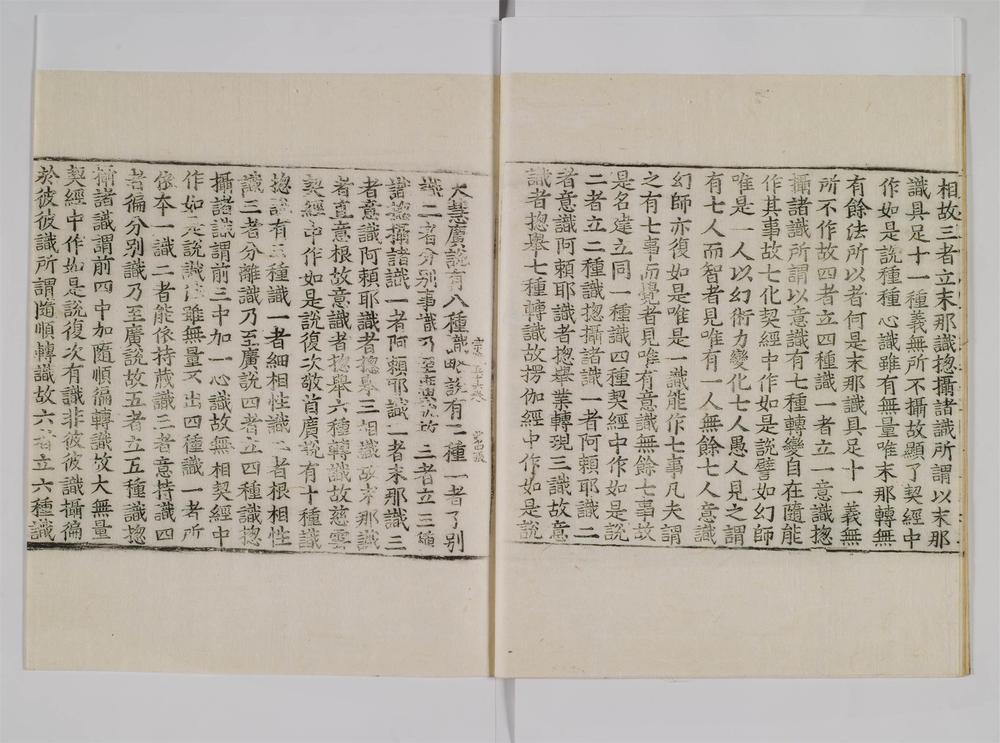 相故三者立末那識揔攝諸識所謂以末那
識具足十一種義無所不攝故顯了契經中
作如是說種種心識雖有無量唯末那轉無
有餘法所以者何是末那識具足十一義無
所不作故四者立四種識一者立一意識揔
攝諸識所謂以意識有七種轉變自在隨能
作其事故七化契經中作如是說譬如幻師
唯是一人以幻術力變化七人愚人見之謂
有七人而智者見唯有一人無餘七人意識
幻師亦復如是唯是一識能作七事凡夫謂
之有七事而覺者見唯有意識無餘七事故
是名建立同一種識四種契經中作如是說
二者立二種識揔攝諸識一者阿賴耶識二
者意識阿賴耶識者揔舉業轉現三識故意
識者揔舉七種轉識故楞伽經中作如是說
大慧廣說有八種識略說有二種一者了别
識二者分别事識乃至廣說故三者立三種
識揔攝諸識一者阿賴耶識二者末那識三
者意識阿賴耶識者揔舉三相識故末那識
者直意根故意識者揔舉六種轉識故慈雲
契經中作如是說復次敬首廣說有十種識
揔說有三種識一者細相性識二者根相性
識三者分離識乃至廣說四者立四種識揔
攝諸識謂前三中加一心識故無相契經中
作如是說識法雖無量不出四種識一者所
依本一識二者能依持藏識三者意持識四
者徧分别識乃至廣說故五者立五種識揔
攝諸識謂前四中加隨順徧轉識故大無量
契經中作如是說復次有識非彼彼識攝徧
於彼彼識所謂隨順轉識故六者立六種識